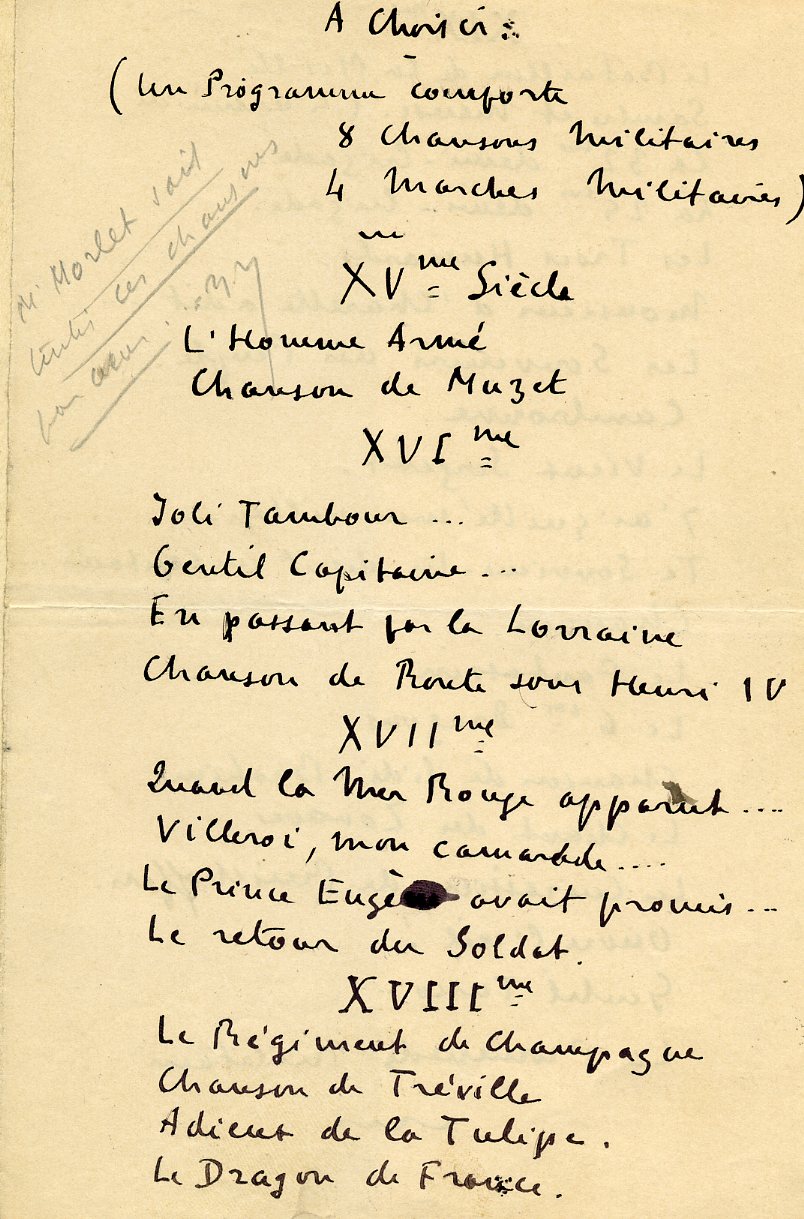 A Choisir :
(Un Programme comporte
8 Chansons Militaires
4 Marches Militaires)
Mr Morlet sait
toutes ces chansons
par cœur.
XVme Siècle
L'Homme Armé
Chanson de Muzet
XVIme
Joli Tambour ...
Gentil Capitaine ...
En passant par la Lorraine
Chanson de Route sous Henri IV
XVIIme
Quand la Mer Rouge apparut ....
Villeroi, mon camarade ....
Le Prince Eugène avait promis ...
Le retour du Soldat.
XVIIIme
Le Régiment de Champagne
Chanson de Tréville
Adieux de la Tulipe.
Le Dragon de France.